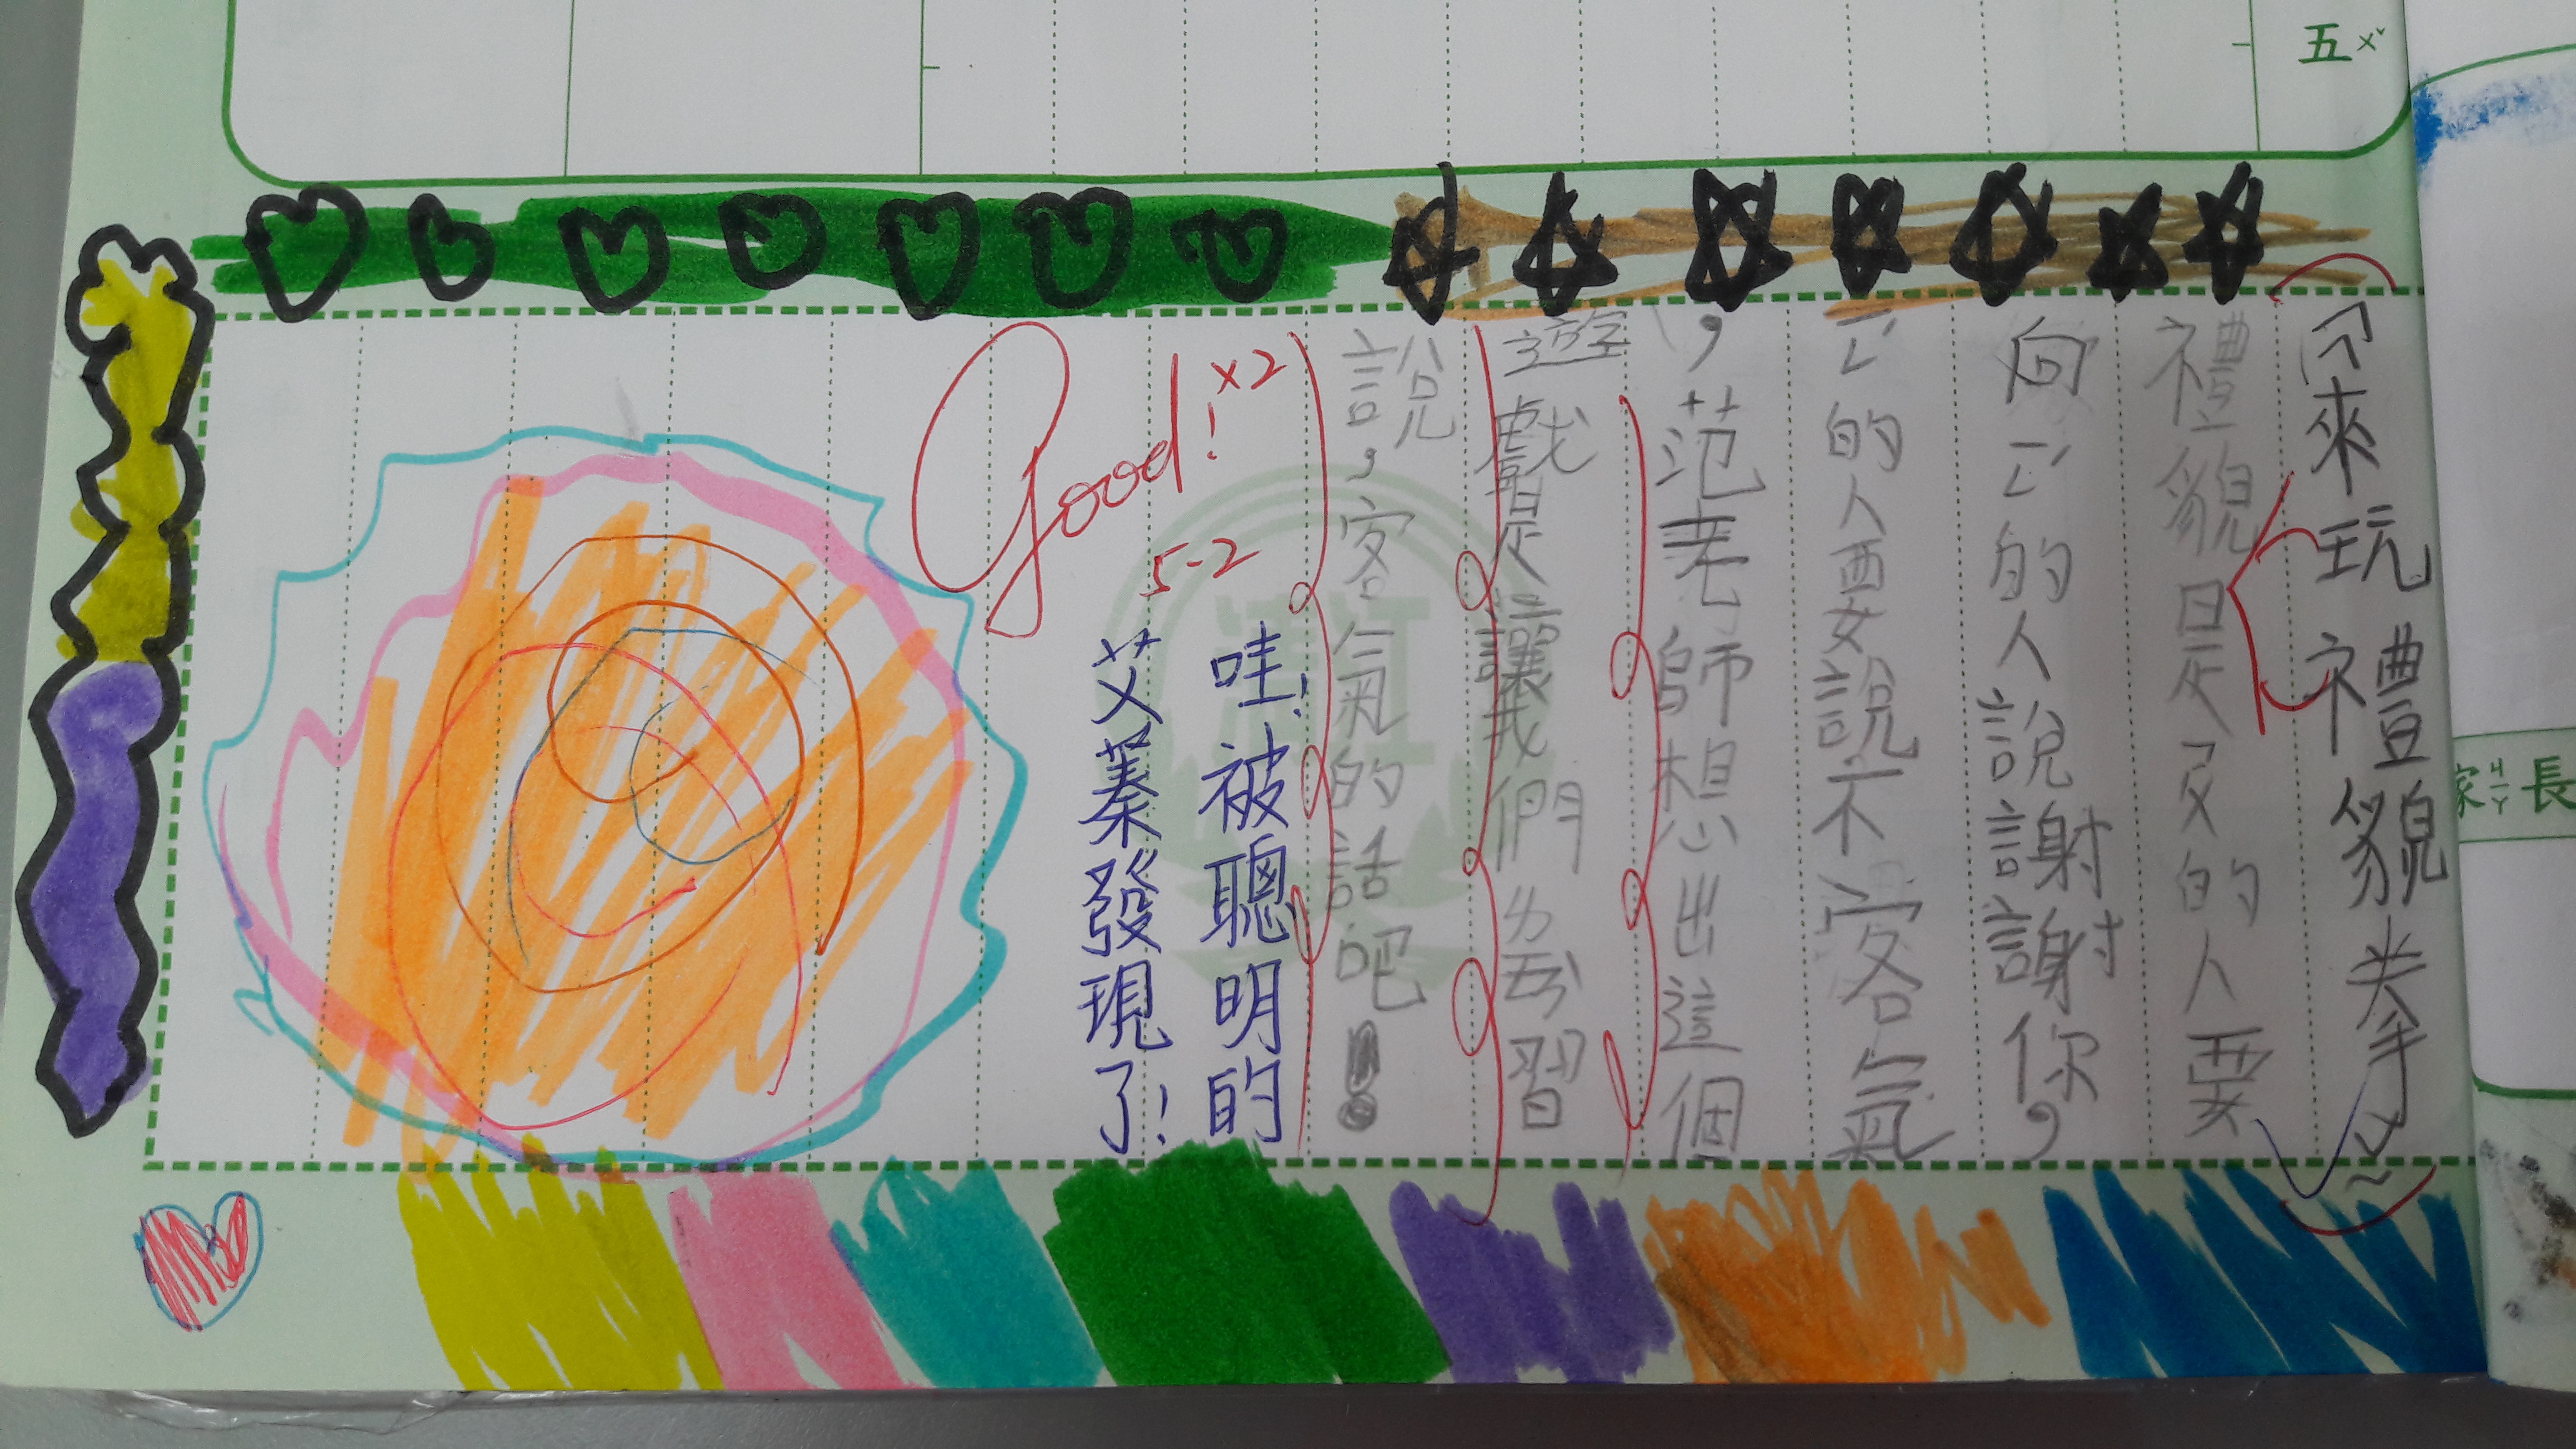 五ㄨˇ
家ㄐㄧㄚ長
來玩禮貌拳
禮貌是的人要
向ㄧㄥˊ的人說謝謝你，
ㄧㄥˊ的人要說不客氣
，范老師想出這個
遊戲是讓我們習
說，客氣的話吧！
Good! ×2
5-2
哇！被聰明的
艾蓁發現了！